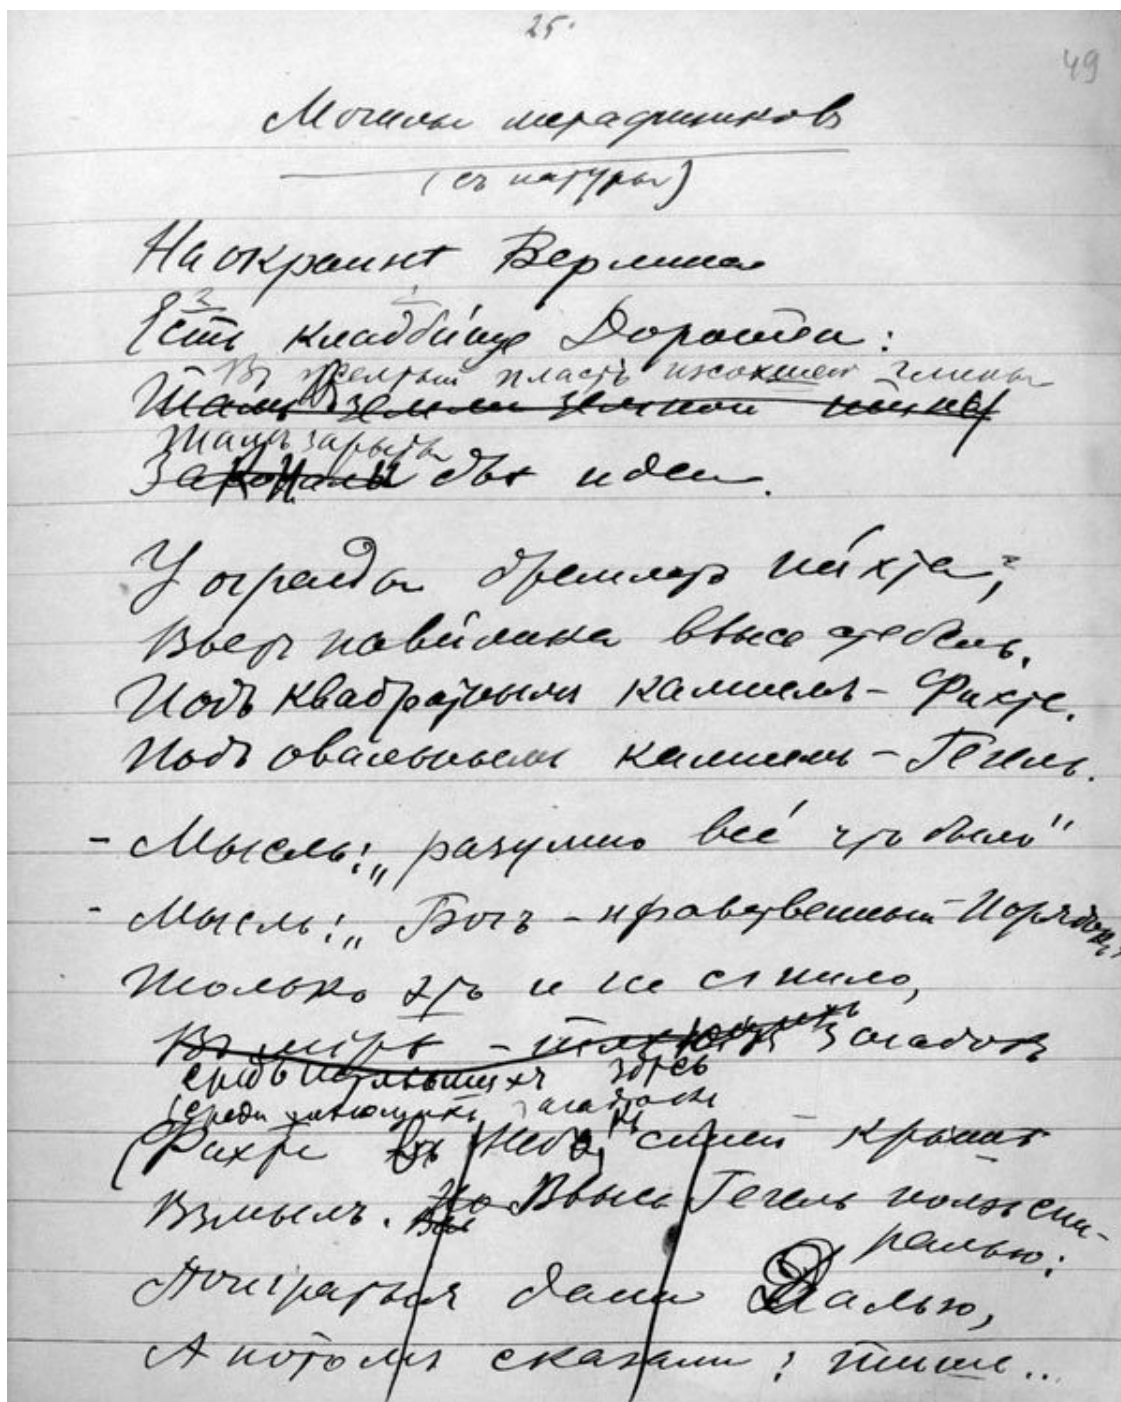 25.
49
Могилы метафизиков
(съ натуры)
На окраинѣ Берлина
Есть кладби́ще Доротеи:
Въ желтый пластъ изсохшей глины
Тамъ
Тамъ зарыты
Закопаны двѣ идеи.
У ограды дремлетъ пи́хта;
Вьетъ пави́лика ввысь стебель.
Подъ квадратнымъ камнемъ – Фихте.
Подъ овальнымъ камнемъ – Гегель.
– Мысль: „разумно всё́ что было"
– Мысль: „Богъ – нравственный Порядокъ"
Только это и не сгнило,
Въ мірѣ – загадокъ
средь истлѣвшихъ здѣсь
среди загадокъ
Фихте въ небо, синей крышей
Взмылъ. Но Ввысь Гегель ползъ спи-
ралью:
Поиграть имъ дали Далью,
А потомъ сказали: тише...